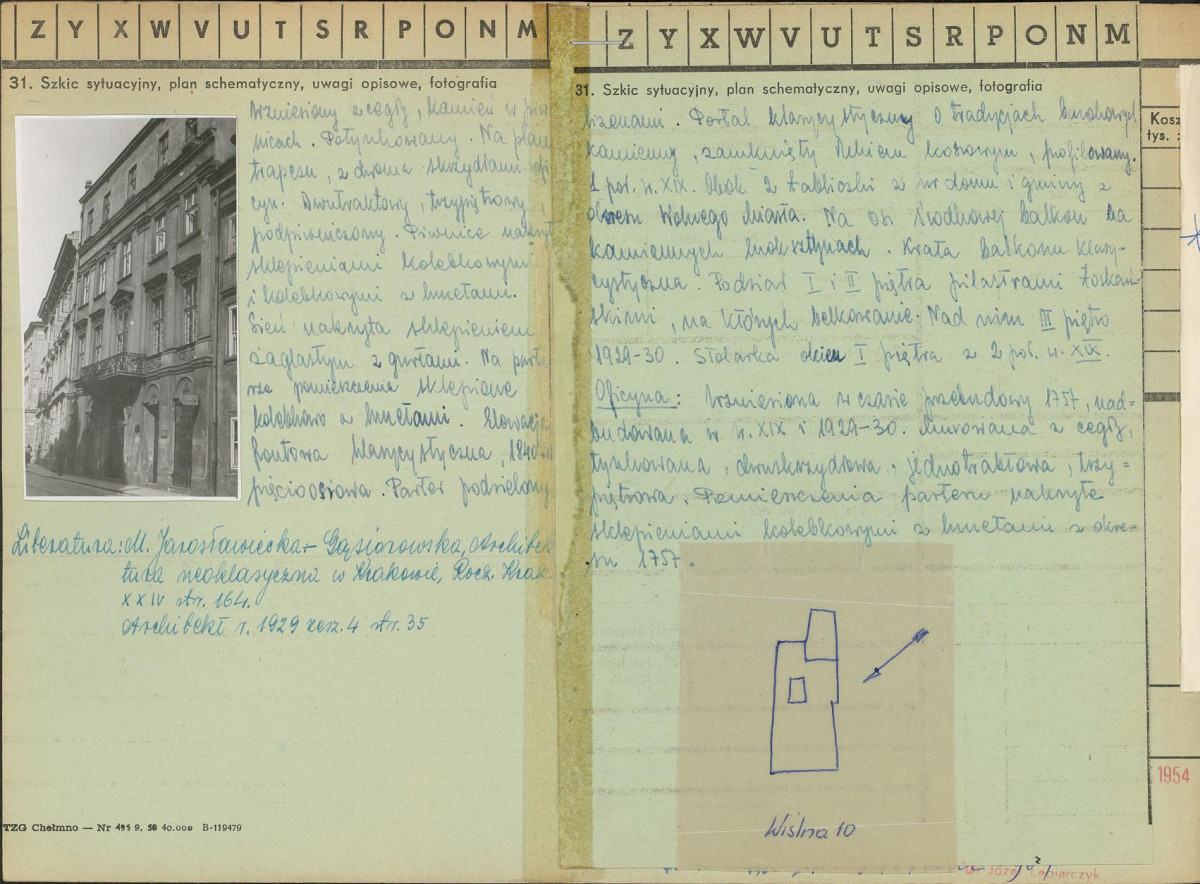 Z Y X W V U T S R P O N M
31. Szkic sytuacyjny, plan schematyczny, uwagi opisowe, fotografia
Wzniesiony z cegły, kamień w piw
nicach. Potynkowany. Na plan
trapezu, z dwoma skrzydłami ofi
cyn. Dwutraktowy, trzypiętrowy,
podpiwniczony. Piwnice nakryt
sklepieniami kolebkowymi
i kolebkowymi z lunetami.
Sień nakryta sklepieniem
żaglastym z gurtami. Na parte
rze pomieszczenia sklepione
kolebkowo z lunetami. Elewacja
frontowa klasycystyczna, 1840
pięcioosiowa. Parter podzielony
Literatura: M. Jarosławiecka-Gąsiorowska, Architek
tura neoklasyczna w Krakowie, Rocz. Krak.
XXIV str. 164.
Architekt r. 1929 zesz. 4 str. 35
TZG Chełmno — Nr 495 9. 58 40.000 B-119479
Z Y X W V U T S R P O N M
31. Szkic sytuacyjny, plan schematyczny, uwagi opisowe, fotografia
Portal klasycystyczny o tradycjach barokowych
kamienny, zamknięty łukiem koszowym, profilowany.
1 poł. w. XIX. Obok 2 tabliczki z nr domu i gminy z
okresu Wolnego Miasta. Na osi środkowej balkon na
kamiennych kroksztynach. Krata balkonu klasy-
cystyczna. Podział I i II piętra pilastrami toskań-
skimi, na których belkowanie. Nad nim III piętro
1929-30. Stolarka okien I piętra z 2 poł. w. XIX.
Oficyna: Wzniesiona w czasie przebudowy 1757, nad-
budowana w w. XIX i 1929-30. Murowana z cegły,
tynkowana, dwuskrzydłowa, jednotraktowa, trzy-
piętrowa. Pomieszczenia parteru nakryte
sklepieniami kolebkowymi z lunetami z okre-
su 1757.
Wiślna 10
Kosz
tys. z
1954
Józef Lepiarczyk